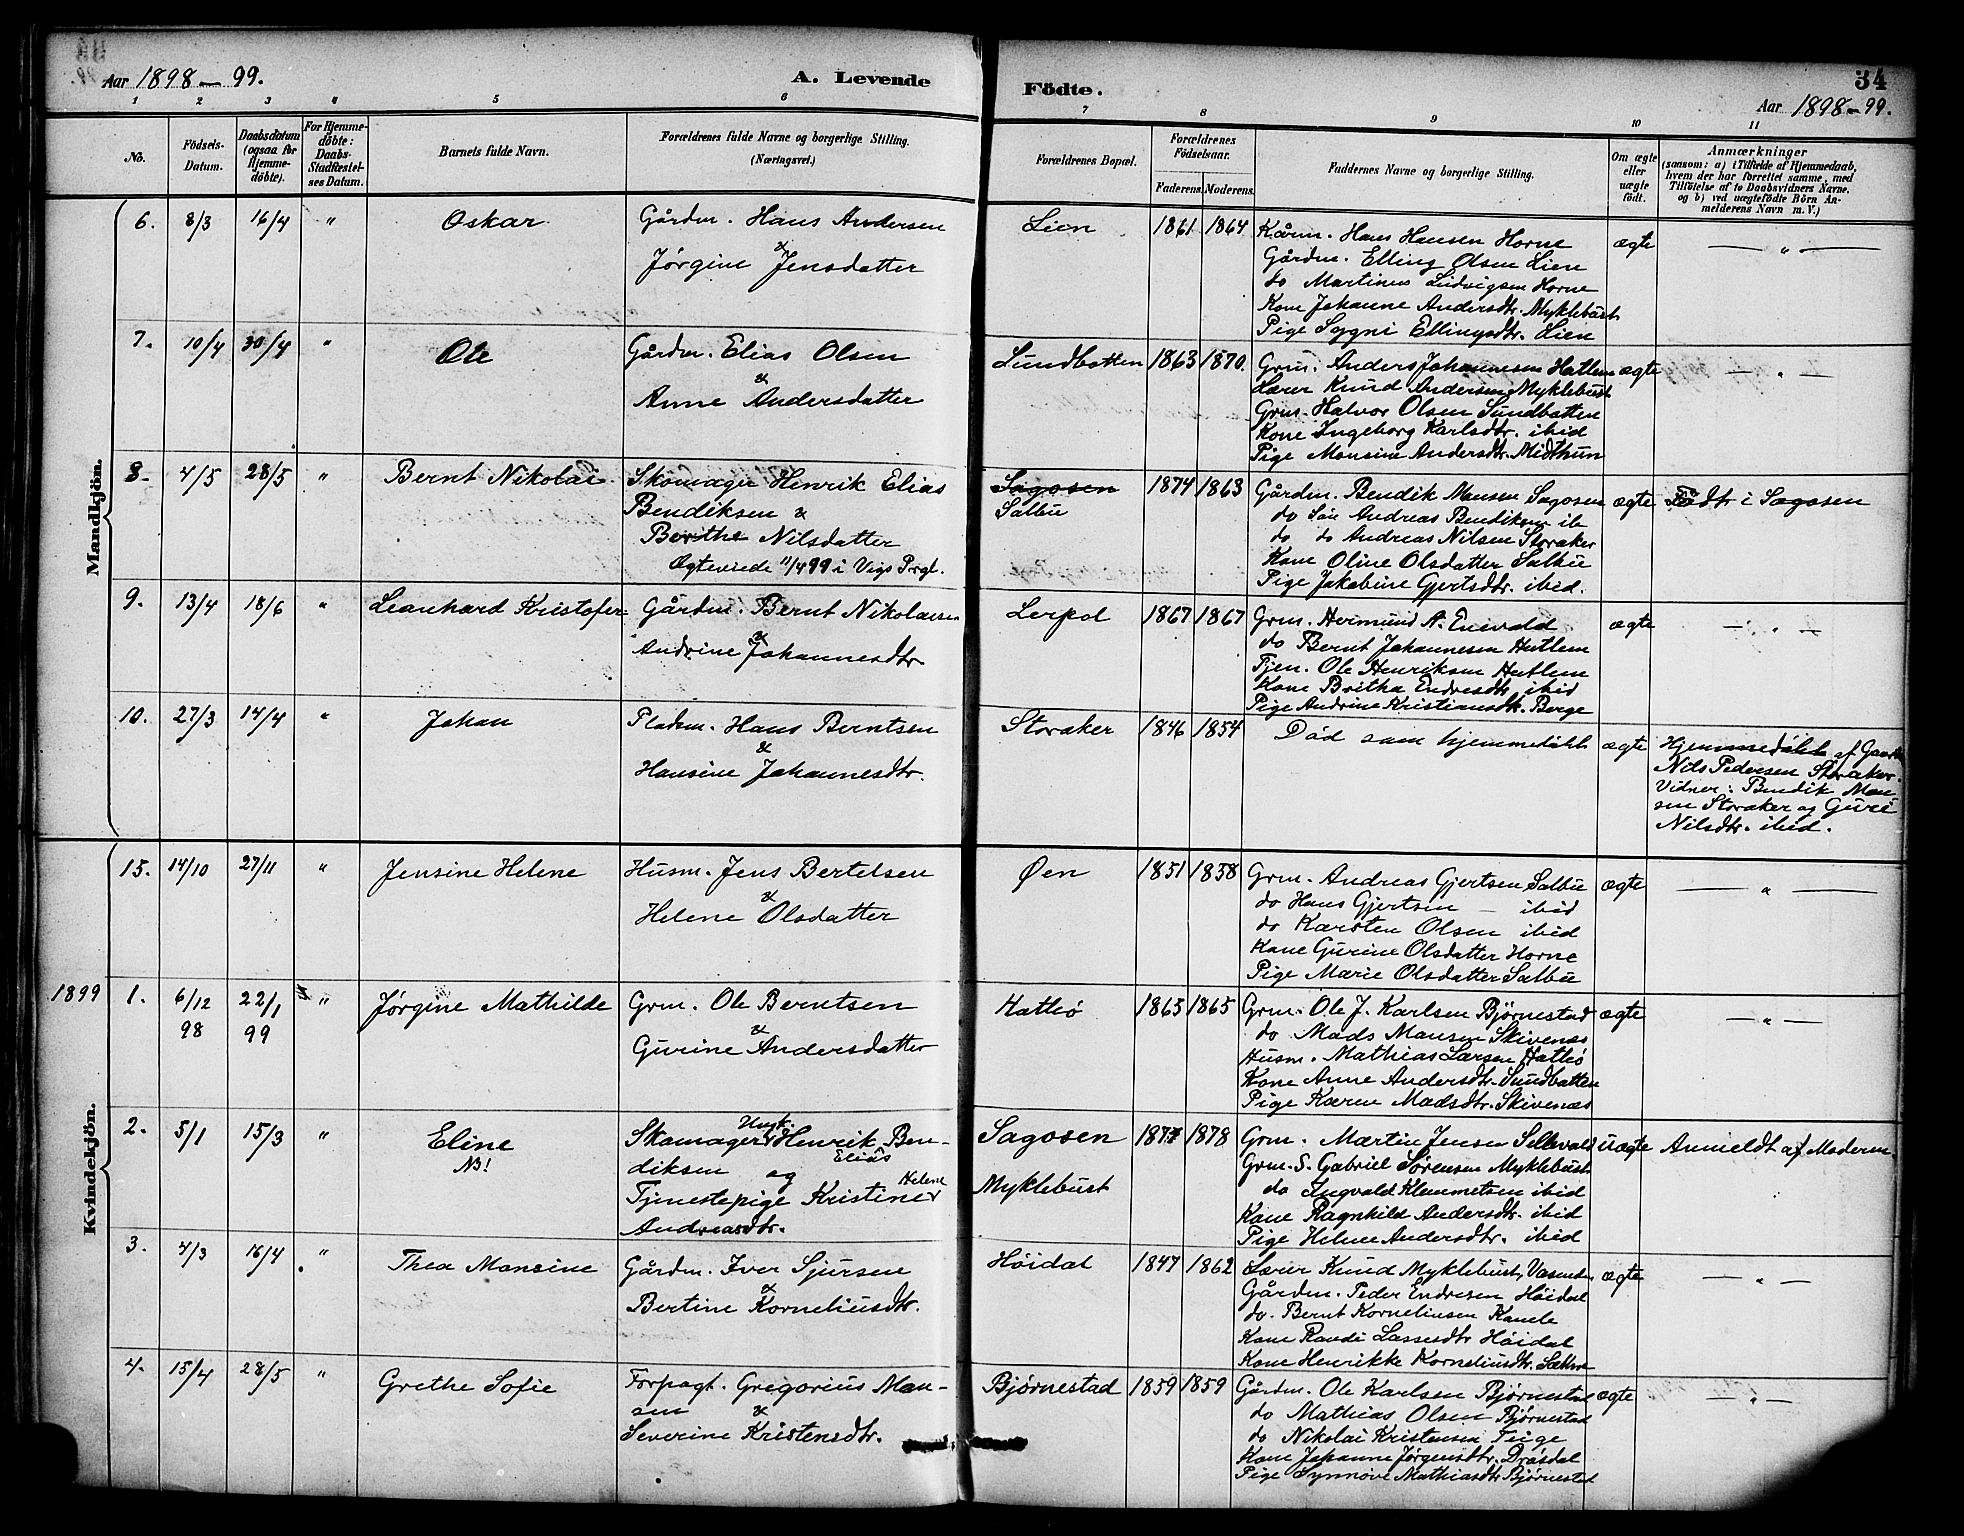 Aar 1898 – 99.
A. Levende
Födte.
34
Aar 1898 – 99.
1 2 3 4 5 6 7 8 9 10 11
No.
Födsels-
Datum.
Daabsdatum
(ogsaa for
Hjemme-
döbte).
For Hjemme-
döbte:
Daabs-
Stadfæstel-
ses Datum.
Barnets fulde Navn.
Forældrenes fulde Navne og borgerlige Stilling.
(Næringsvei.)
Forældrenes Bopæl.
Forældrenes
Födselsaar.
Faderens. Moderens.
Faddernes Navne og borgerlige Stilling.
Om ægte
eller
uægte
födt.
Anmærkninger
(saasom: a) i Tilfælde af Hjemmedaab,
hvem der har forrettet samme, med
Tilföielse af to Daabsvidners Navne,
og b) ved uægtefödte Börn An-
melderens Navn m. V.)
Mandkjön.
6. 8/3 16/4 " Oskar
Gårdm. Hans Andersen
&
Jørgine Jensdatter
Lien 1861 1864
Kårm. Hans Hansen Horne
Gårdm. Elling Olsen Lien
do Martinus Ludvigsen Horne
Kone Johanne Andersdtr. Myklebust
Pige Sygni Ellingsdtr. Lien
ægte — " —
7. 10/4 30/4 " Ole
Gårdm. Elias Olsen
&
Anne Andersdatter
Sundbotten 1863 1870.
Grm. Anders Johannesen Hatlem
Lærer Knud Andersen Myklebust
Grm. Halvor Olsen Sundbotten
Kone Ingeborg Karlsdtr. ibid
Pige Monsine Andersdtr. Midthun
ægte — " —
8. 4/5 28/5 " Bernt Nikolai
Skomager Henrik Elias
Bendiksen &
Berithe Nilsdatter
Ægteviede 11/4 99 i Viks Prgl.
Sagosen
Salbu
1874 1863
Gårdm. Bendik Monsen Sagosen
do Søn Andreas Bendiksen ib
do do Andreas Nilsen Storaker
Kone Oline Olsdatter Salbu
Pige Jakobine Gjertsdtr. ibid.
ægte Født i Sagosen
9. 13/4 18/6 " Leonhard Kristofer
Gårdm. Bernt Nikolaisen
&
Andrine Johannesdtr.
Lerpol 1867 1867
Grm. Hermund A. Enevald
do Bernt Johannesen Hutlem
Tjen. Ole Henriksen Hutlem
Kone Britha Endresdtr. ibid
Pige Andrine Kristiansdtr. Berge
ægte — " —
10. 27/3 14/4 " Johan
Pladsm. Hans Berntsen
&
Hansine Johannesdtr.
Storaker 1846 1854
Død som hjemmedøbt
ægte
Hjemmedøbt af Gaardm.
Nils Pedersen Storaker.
Vidner: Bendik Mon-
sen Storaker og Guri
Nilsdtr. ibid.
Kvindekjön.
15. 14/10 27/11 " Jensine Helene
Husm. Jens Bertelsen
&
Helene Olsdatter
Øen 1851 1858
Grm. Andreas Gjertsen Salbu
do Hans Gjertsen — ibid
do Karsten Olsen ibid
Kone Gurine Olsdatter Horne
Pige Marie Olsdatter Salbu
ægte — " —
1899
1. 6/12 98 22/1 99 " Jørgine Mathilde
Grm. Ole Berntsen
&
Gurine Andersdatter
Hatlø 1863 1865
Grm. Ole J. Karlsen Bjørnestad
do Mads Monsen Skivenæs
Husm. Mathias Larsen Hatlø
Kone Anne Andersdtr. Sundbotten
Pige Karen Madsdtr. Skivenæs
ægte — " —
2. 5/1 15/3 " Eline
NB!
Ungk.
Skomager Henrik Ben-
Elias
diksen og
Helene
Tjenestepige Kristine
Andreasdtr.
Sagosen
Myklebust
1877 1878
Grm. Martin Jensen Sellevold
Grm. S. Gabriel Sørensen Myklebust
do Ingvald Klemmetsen ibid
Kone Ragnhild Andersdtr. ibid
Pige Helene Andersdtr. ibid
uægte Anmeldt af Moderen.
3. 4/3 16/4 " Thea Monsine
Gårdm. Iver Sjursen
&
Bertine Korneliusdtr.
Høidal 1847 1862
Lærer Knud Myklebust,
Gårdm. Peder Endresen Høidal
do. Bernt Korneliusen
Kone Randi Lassesdtr. Høidal
Kone Henrikke Korneliusdtr.
ægte — " —
4. 15/4 28/5 " Grethe Sofie
Forpagt. Gregorius Mon-
sen &
Severine Kristensdtr.
Bjørnestad 1859 1859
Gårdm. Ole Karlsen Bjørnestad
do Mathias Olsen Bjørnestad
do Nikolai Kristensen Teige
Kone Johanne Jørgensdtr. Drøsdal
Pige Synnøve Mathiasdtr. Bjørnestad
ægte — " —